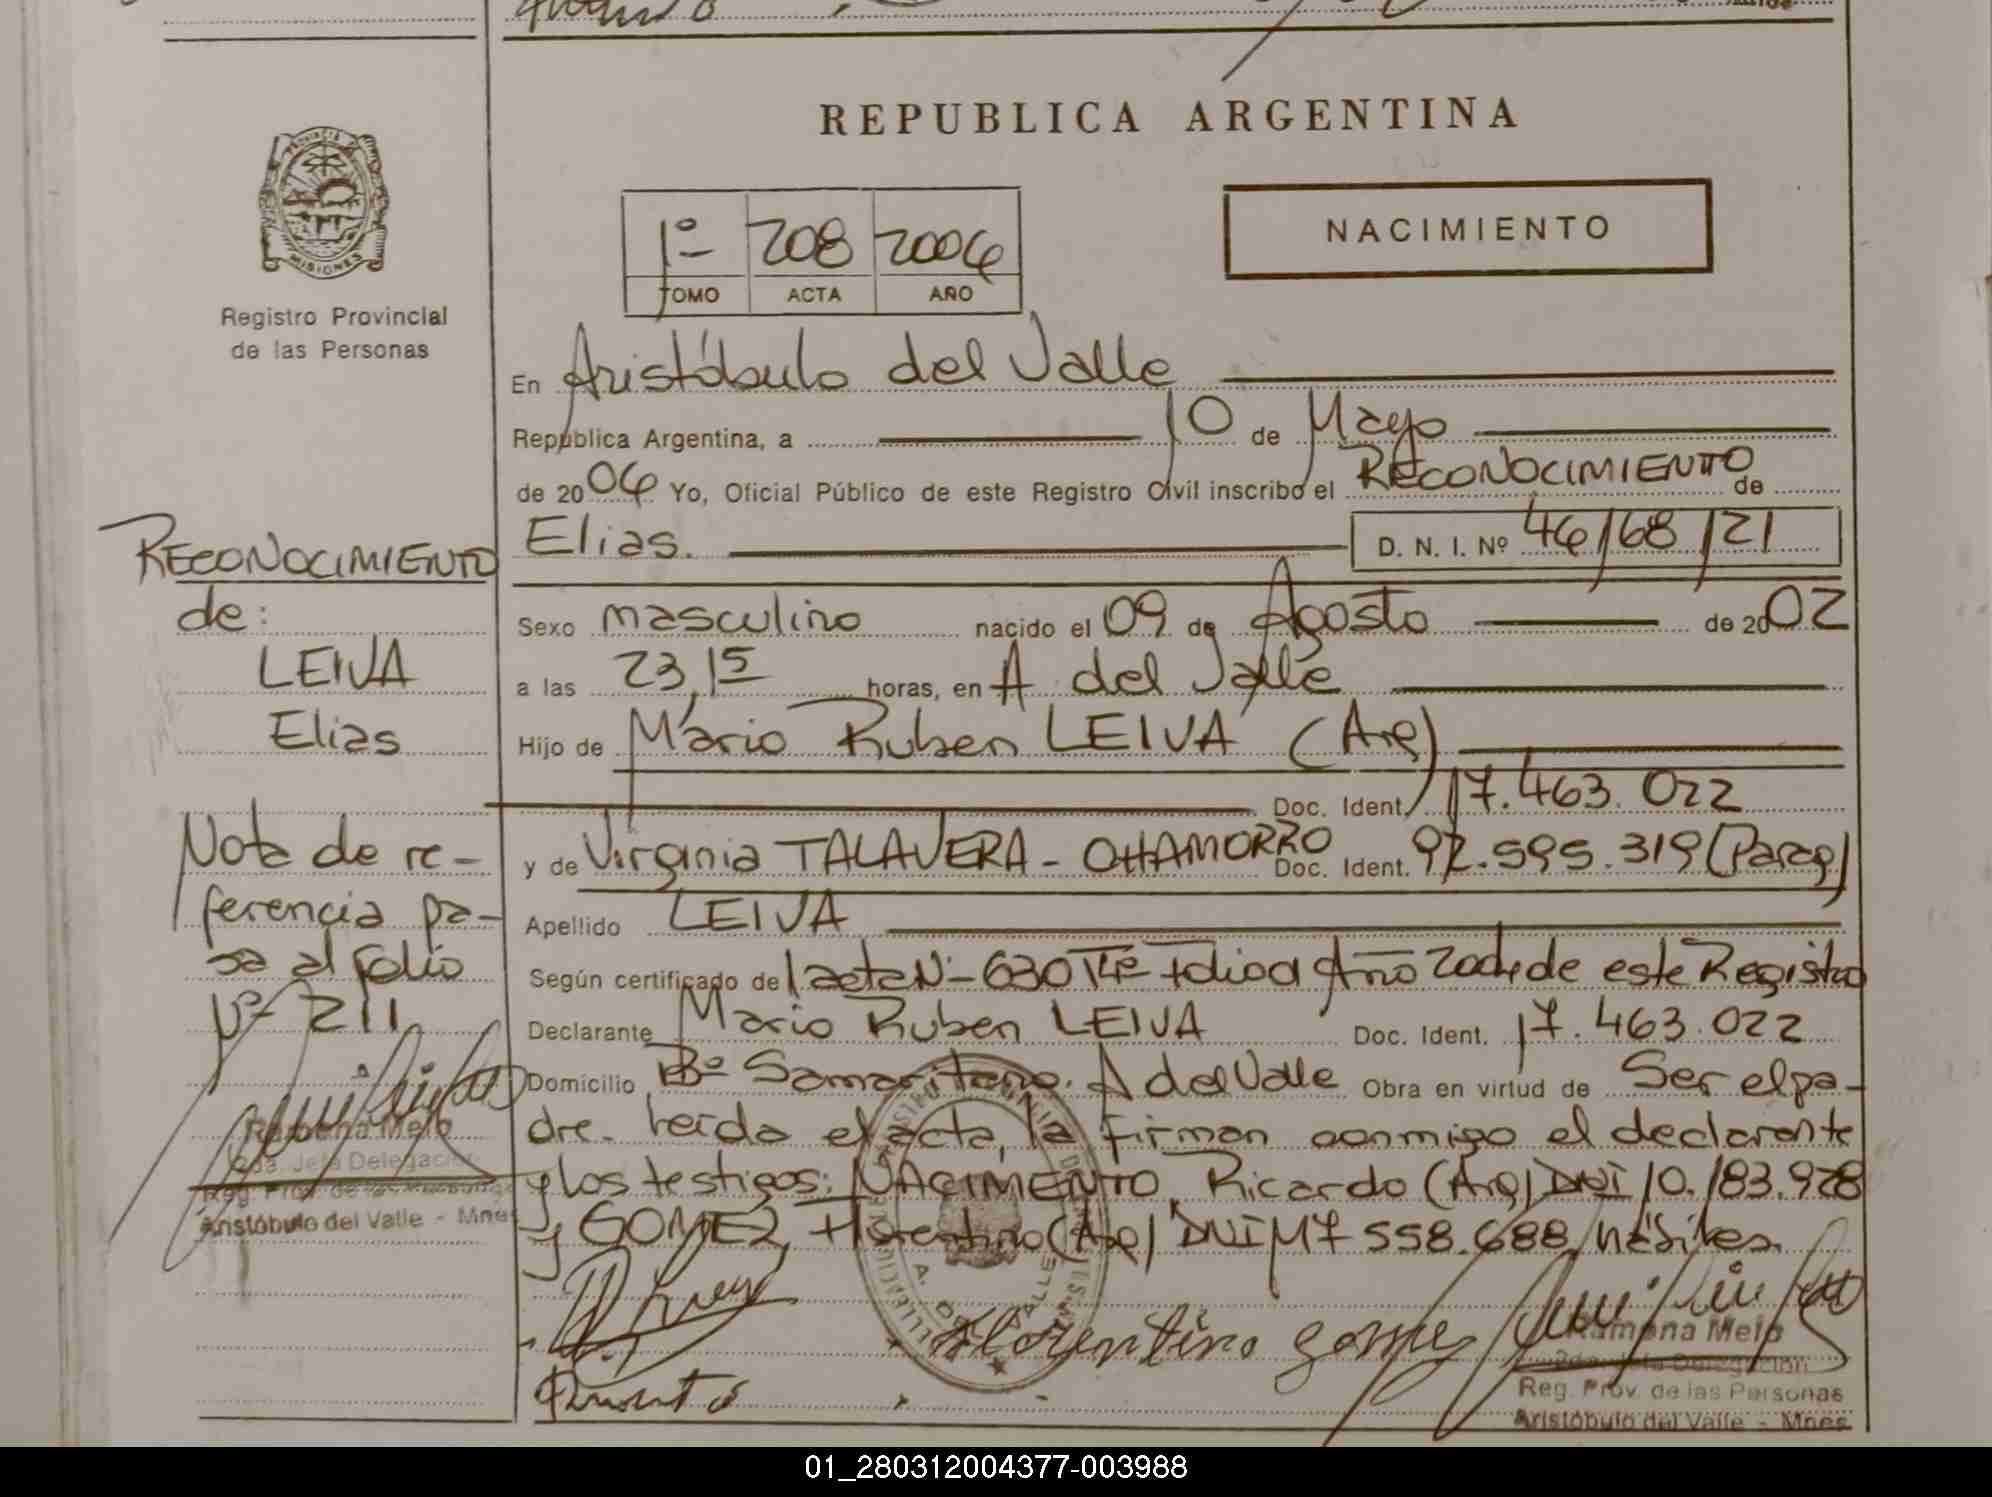 REPUBLICA ARGENTINA
PROVINCIA DE
MISIONES
Registro Provincial
de las Personas
1º 208 2006
TOMO ACTA AÑO
NACIMIENTO
En Aristóbulo del Valle
República Argentina, a 10 de Mayo
de 2006 Yo, Oficial Público de este Registro Civil inscribo el RECONOCIMIENTO de
Elias. D. N. I. Nº 46/68/21
Sexo masculino nacido el 09 de Agosto de 2002
a las 23,15 horas, en A del Valle
Hijo de Mario Ruben LEIVA (Arg)
Doc. Ident. 17.463.022
y de Virginia TALAVERA - CHAMORRO Doc. Ident. 92.595.319 (Parag)
Apellido LEIVA
Según certificado de acta Nº 630 Tº Folio Año de este Registro
Declarante Mario Ruben LEIVA Doc. Ident. 17.463.022
Domicilio Bº Samaritano. A del Valle Obra en virtud de Ser el pa-
dre. Leída el acta, la firman conmigo el declarante
y los testigos: NACIMENTO, Ricardo (Arg) DNI 10.183.928
y GOMEZ, Florentino (Arg) DNI M7 558.688, hábiles.
Florentino gomes
Ramona Melo
2da. Jefa Delegación
Reg. Prov. de las Personas
Aristóbulo del Valle - Mnes
RECONOCIMIENTO
de:
LEIVA
Elias
Nota de re-
ferencia pa-
sa al folio
Nº 211
Ramona Melo
2da. Jefa Delegación
Reg. Prov. de las Personas
Aristóbulo del Valle - Mnes
01_280312004377-003988